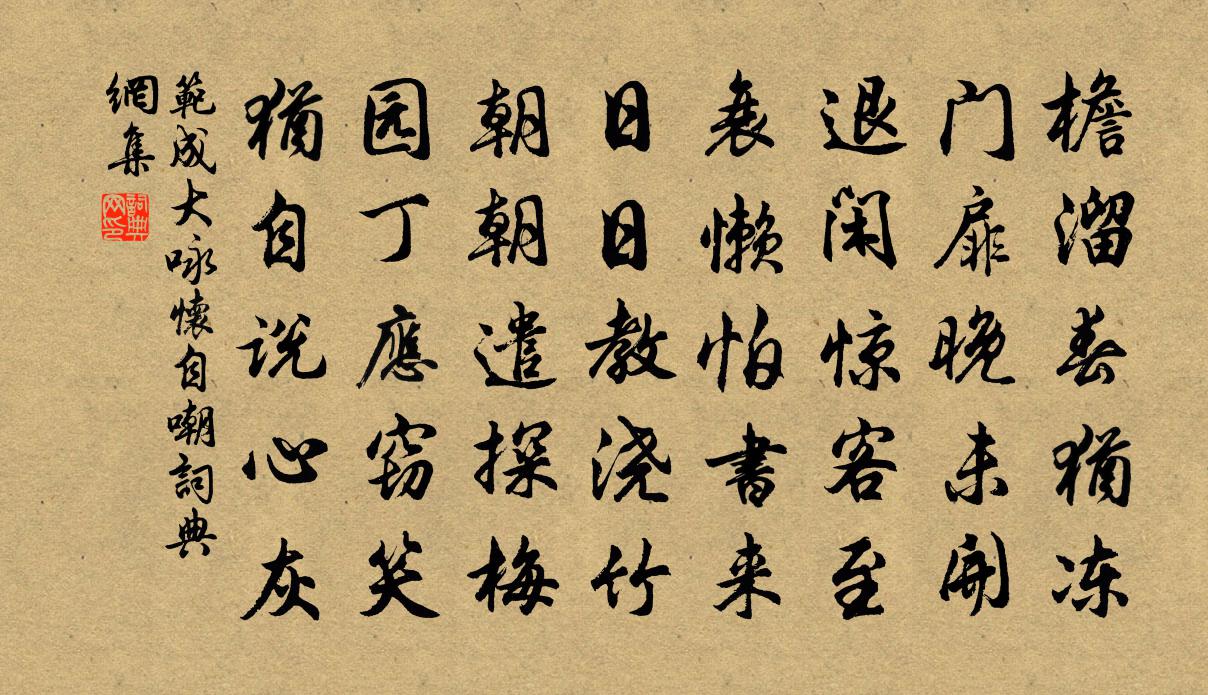 檐溜春猶冻
门扉晚未開
退闲惊客至
衰懒怕書来
日日教浇竹
朝朝遣探梅
园丁應窃笑
猶自说心灰
範成大咏懷自嘲詞典
網集
詞典网印